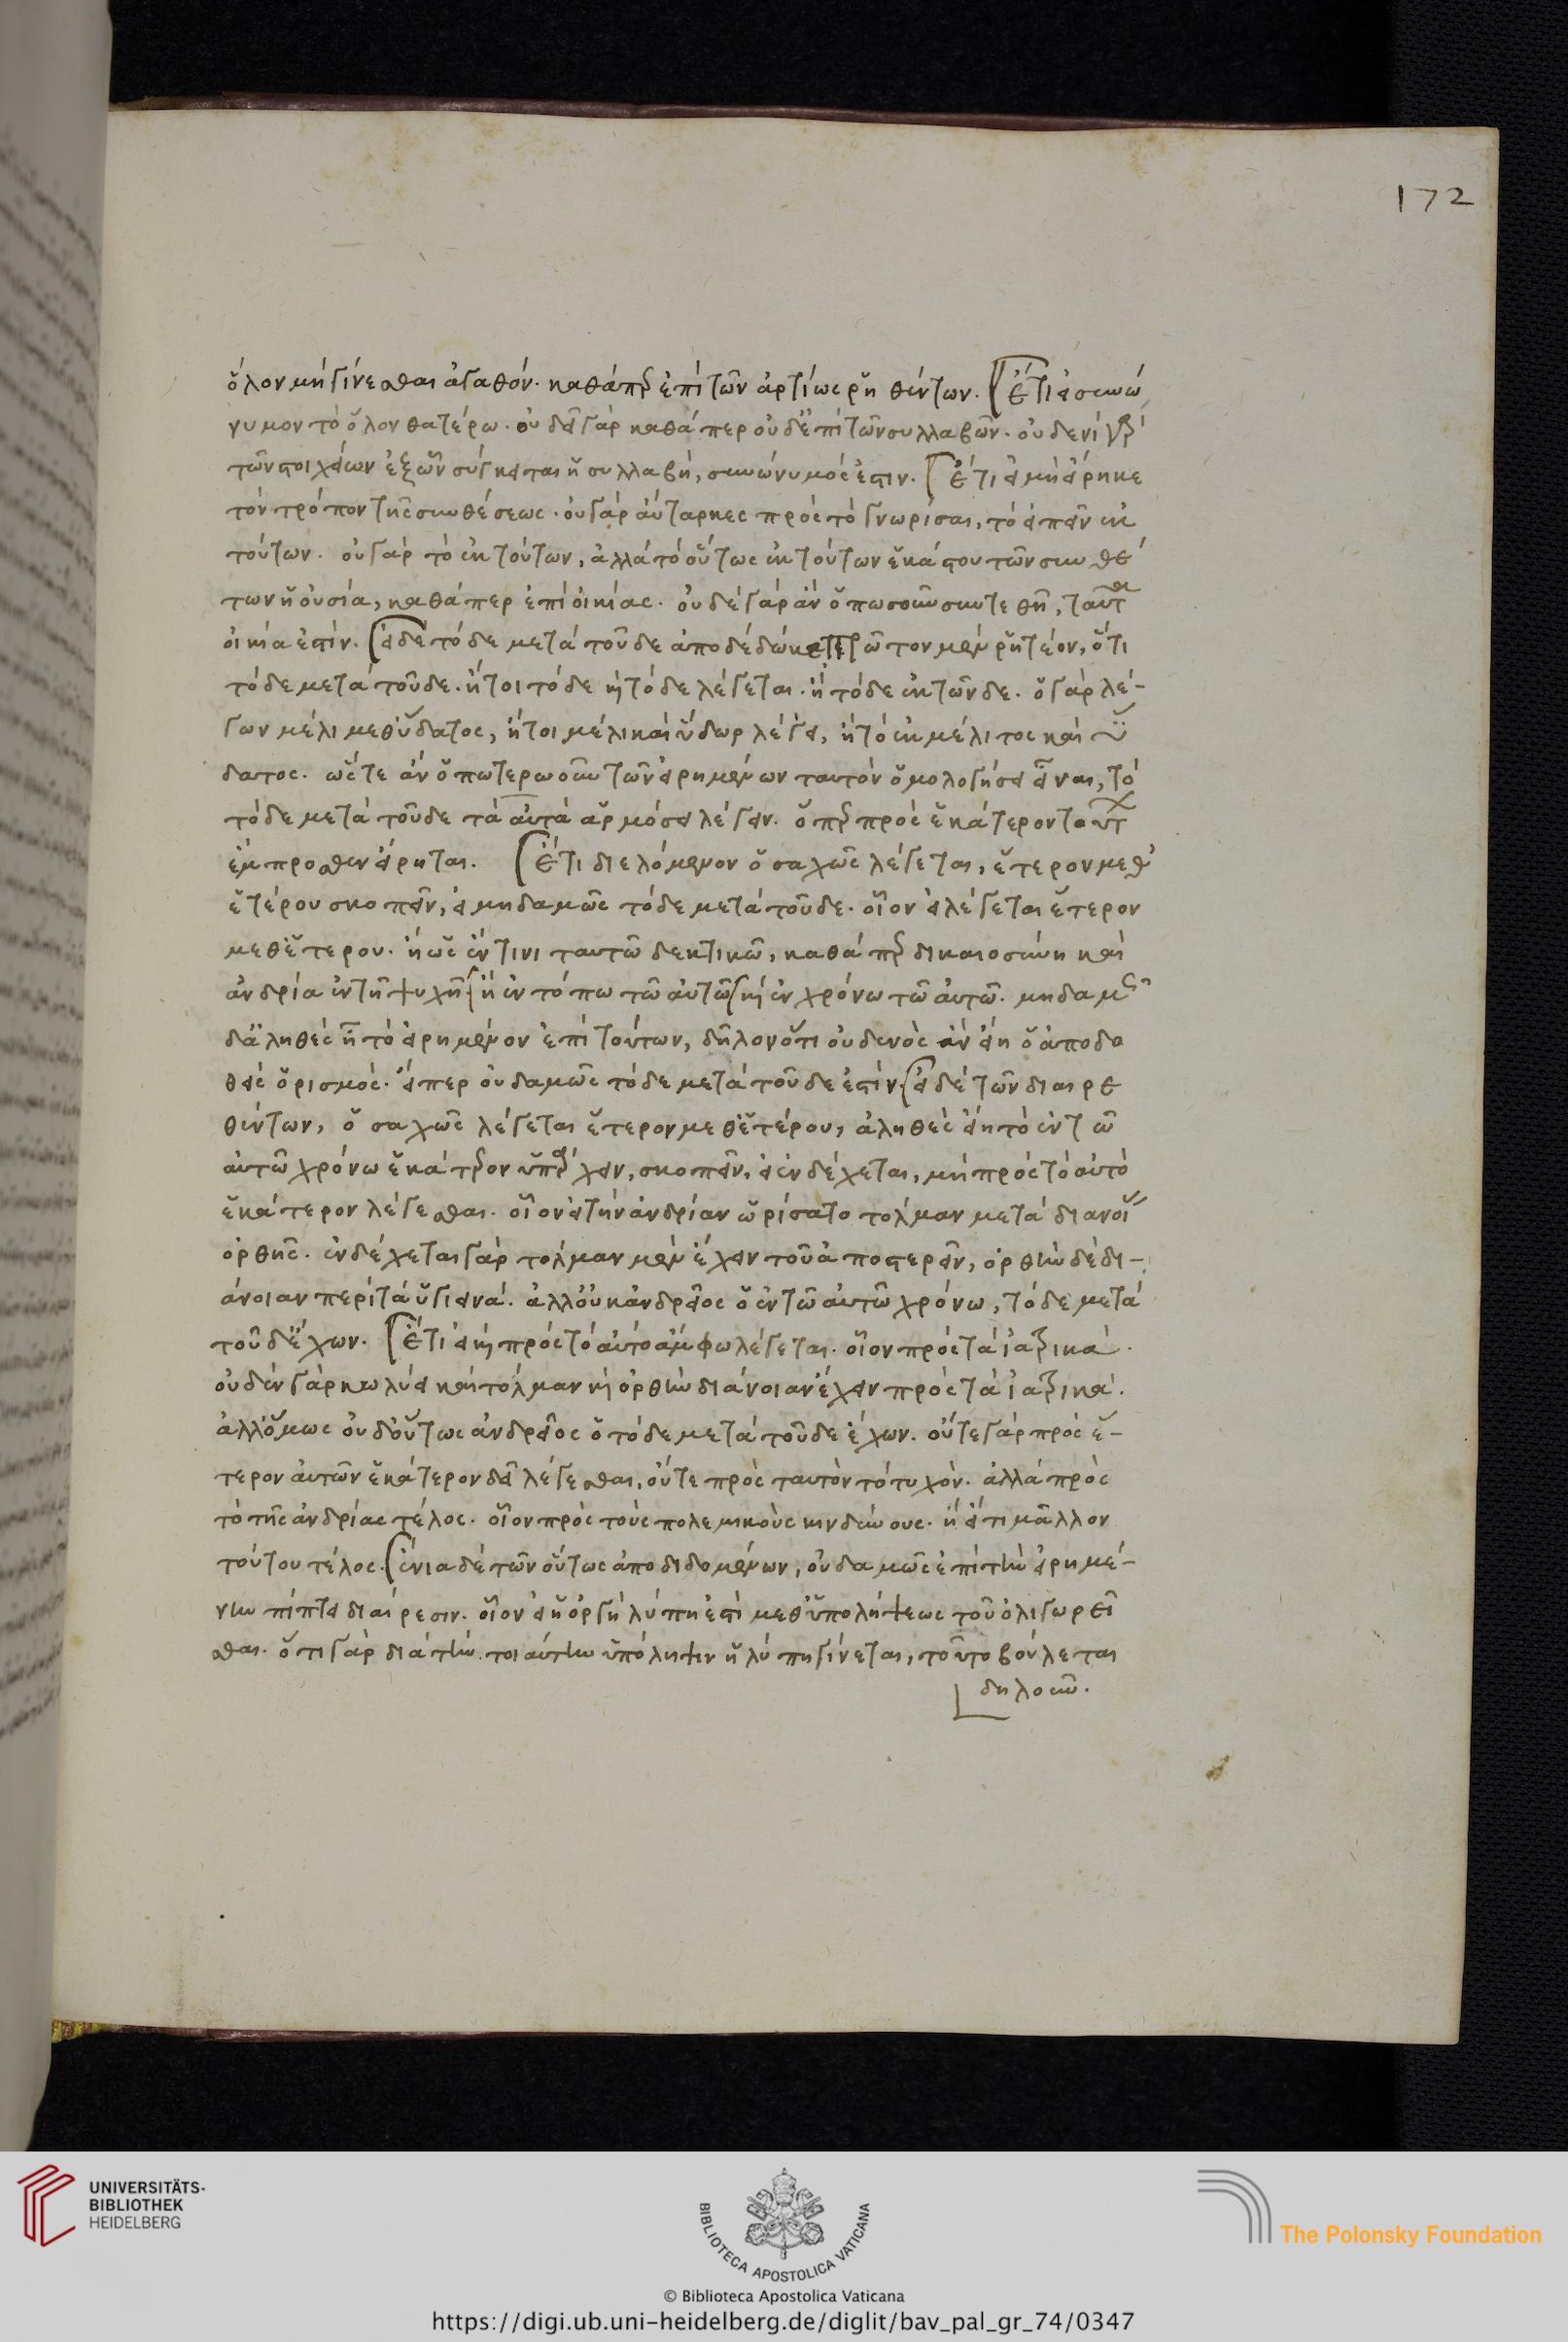 172
ὅλον μὴ γίνεσθαι ἀγαθόν. καθάπερ ἐπὶ τῶν ἀρτίως ῥηθέντων. Ἔτι εἰ συνώ
νυμον τὸ ὅλον θατέρω. οὐ δεῖ γὰρ καθάπερ οὐδ' ἐπὶ τῶν συλλαβῶν. οὐδενὶ γὰρ
τῶν στοιχείων ἐξ ὧν σύγκειται ἡ συλλαβή, συνώνυμός ἐστιν. Ἔτι εἰ μὴ εἴρηκε
τὸν τρόπον τῆς συνθέσεως. οὐ γὰρ αὔταρκες πρὸς τὸ γνωρίσαι, τὸ εἰπεῖν ἐκ
τούτων. οὐ γὰρ τὸ ἐκ τούτων, ἀλλὰ τὸ οὕτως ἐκ τούτων ἑκάστου τῶν συνθέ
των ἡ οὐσία, καθάπερ ἐπὶ οἰκίας. οὐδὲ γὰρ ἂν ὁπωσοῦν συντεθῆ, ταῦτα
οἰκία ἐστίν. εἰ δὲ τόδε μετὰ τοῦδε ἀποδέδωκε πρῶτον μὲν ῥητέον, ὅτι
τόδε μετὰ τοῦδε. ἤτοι τόδε καὶ τόδε λέγεται. ἢ τόδε ἐκ τῶνδε. ὁ γὰρ λέ-
γων μέλι μεθ' ὕδατος, ἤτοι μέλι καὶ ὕδωρ λέγει, ἢ τὸ ἐκ μέλιτος καὶ ὕ
δατος. ὥστε ἂν ὁποτερωοῦν τῶν εἰρημένων ταυτὸν ὁμολογήσει εἶναι, τὸ
τόδε μετὰ τοῦδε τὰ αὐτὰ ἁρμόσει λέγειν. ἅπερ πρὸς ἑκάτερον τούτων
ἔμπροσθεν εἴρηται. Ἔτι διελόμενον ὁσαχῶς λέγεται, ἕτερον μεθ'
ἑτέρου σκοπεῖν, εἰ μηδαμῶς τόδε μετὰ τοῦδε. οἷον εἰ λέγεται ἕτερον
μεθ' ἑτέρου. ἢ ὡς ἔν τινι ταυτῶ δεκτικῶ, καθάπερ δικαιοσύνη καὶ
ἀνδρία ἐν τῆ ψυχῆ ἢ ἐν τόπω τῶ αὐτῶ ἢ ἐν χρόνω τῶ αὐτῶ. μηδαμῶς
δ' ἀληθὲς ἦ τὸ εἰρημένον ἐπὶ τούτων, δῆλον ὅτι οὐδενὸς ἂν εἴη ὁ ἀποδο
θεὶς ὁρισμός. εἴπερ οὐδαμῶς τόδε μετὰ τοῦδε ἐστίν. εἰ δὲ τῶν διαιρε
θέντων, ὁσαχῶς λέγεται ἕτερον μεθ' ἑτέρου, ἀληθὲς εἴη τὸ ἐν τῶ
αὐτῶ χρόνω ἑκάτερον ὑπάρχειν, σκοπεῖν, εἰ ἐνδέχεται, μὴ πρὸς τὸ αὐτὸ
ἑκάτερον λέγεσθαι. οἷον εἰ τὴν ἀνδρίαν ὡρίσατο τόλμαν μετὰ διανοίας
ὀρθῆς. ἐνδέχεται γὰρ τόλμαν μὲν ἔχειν τοῦ ἀποστερεῖν, ὀρθὴν δὲ δι-
άνοιαν περὶ τὰ ὑγιεινά. ἀλλ' οὐκ ἀνδρεῖος ὁ ἐν τῶ αὐτῶ χρόνω, τόδε μετὰ
τοῦδ' ἔχων. Ἔτι εἰ καὶ πρὸς τὸ αὐτὸ ἄμφω λέγεται. οἷον πρὸς τὰ ἰατρικά.
οὐδὲν γὰρ κωλύει καὶ τόλμαν καὶ ὀρθὴν διάνοιαν ἔχειν πρὸς τὰ ἰατρικά.
ἀλλ' ὅμως οὐδ' οὕτως ἀνδρεῖος ὁ τόδε μετὰ τοῦδε ἔχων. οὔτε γὰρ πρὸς ἕ-
τερον αὐτῶν ἑκάτερον δεῖ λέγεσθαι, οὔτε πρὸς ταυτὸν τὸ τυχόν. ἀλλὰ πρὸς
τὸ τῆς ἀνδρίας τέλος. οἷον πρὸς τοὺς πολεμικοὺς κινδύνους. ἢ εἴ τι μᾶλλον
τούτου τέλος. ἔνια δὲ τῶν οὕτως ἀποδιδομένων, οὐδαμῶς ἐπὶ τὴν εἰρημέ-
νην πίπτει διαίρεσιν. οἷον εἰ ἡ ὀργὴ λύπη ἐστὶ μεθ' ὑπολήψεως τοῦ ὀλιγωρεῖ
σθαι. ὅτι γὰρ διὰ τὴν τοιαύτην ὑπόληψιν ἡ λύπη γίνεται, τοῦτο βούλεται
δηλοῦν.
UNIVERSITÄTS-
BIBLIOTHEK
HEIDELBERG
BIBLIOTECA APOSTOLICA VATICANA
The Polonsky Foundation
© Biblioteca Apostolica Vaticana
https://digi.ub.uni-heidelberg.de/diglit/bav_pal_gr_74/0347